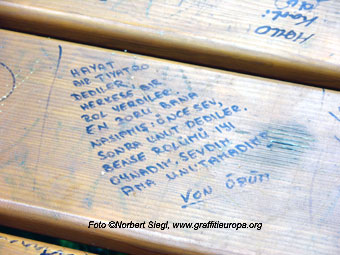 HALLO
HAYAT
BİR TYATRO
DEDILER,
HERKESE BIR
ROL VERDILER.
EN ZORU BANA
SEV,
SONRA UNUT DEDILER.
BENSE ROLÜMÜ IYI
OYNADIM, SEVDIM
AMA UNUTAMADIM
VON
Foto ©Norbert Siegl, www.graffitieuropa.org